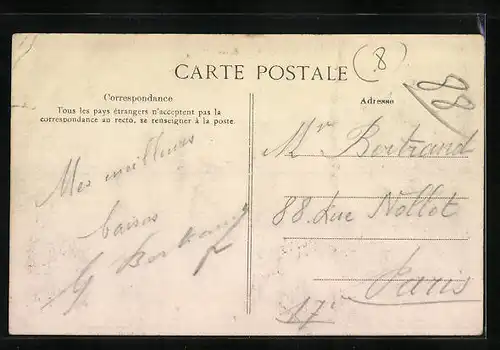 (8)
88
CARTE POSTALE
Correspondance
Tous les pays étrangers n'acceptent pas la
correspondance au recto, se renseigner à la poste.
Adresse
Mes meilleurs
baisers
G Bertrand
Mr Bertrand
88 Rue Nollet
Paris
17e